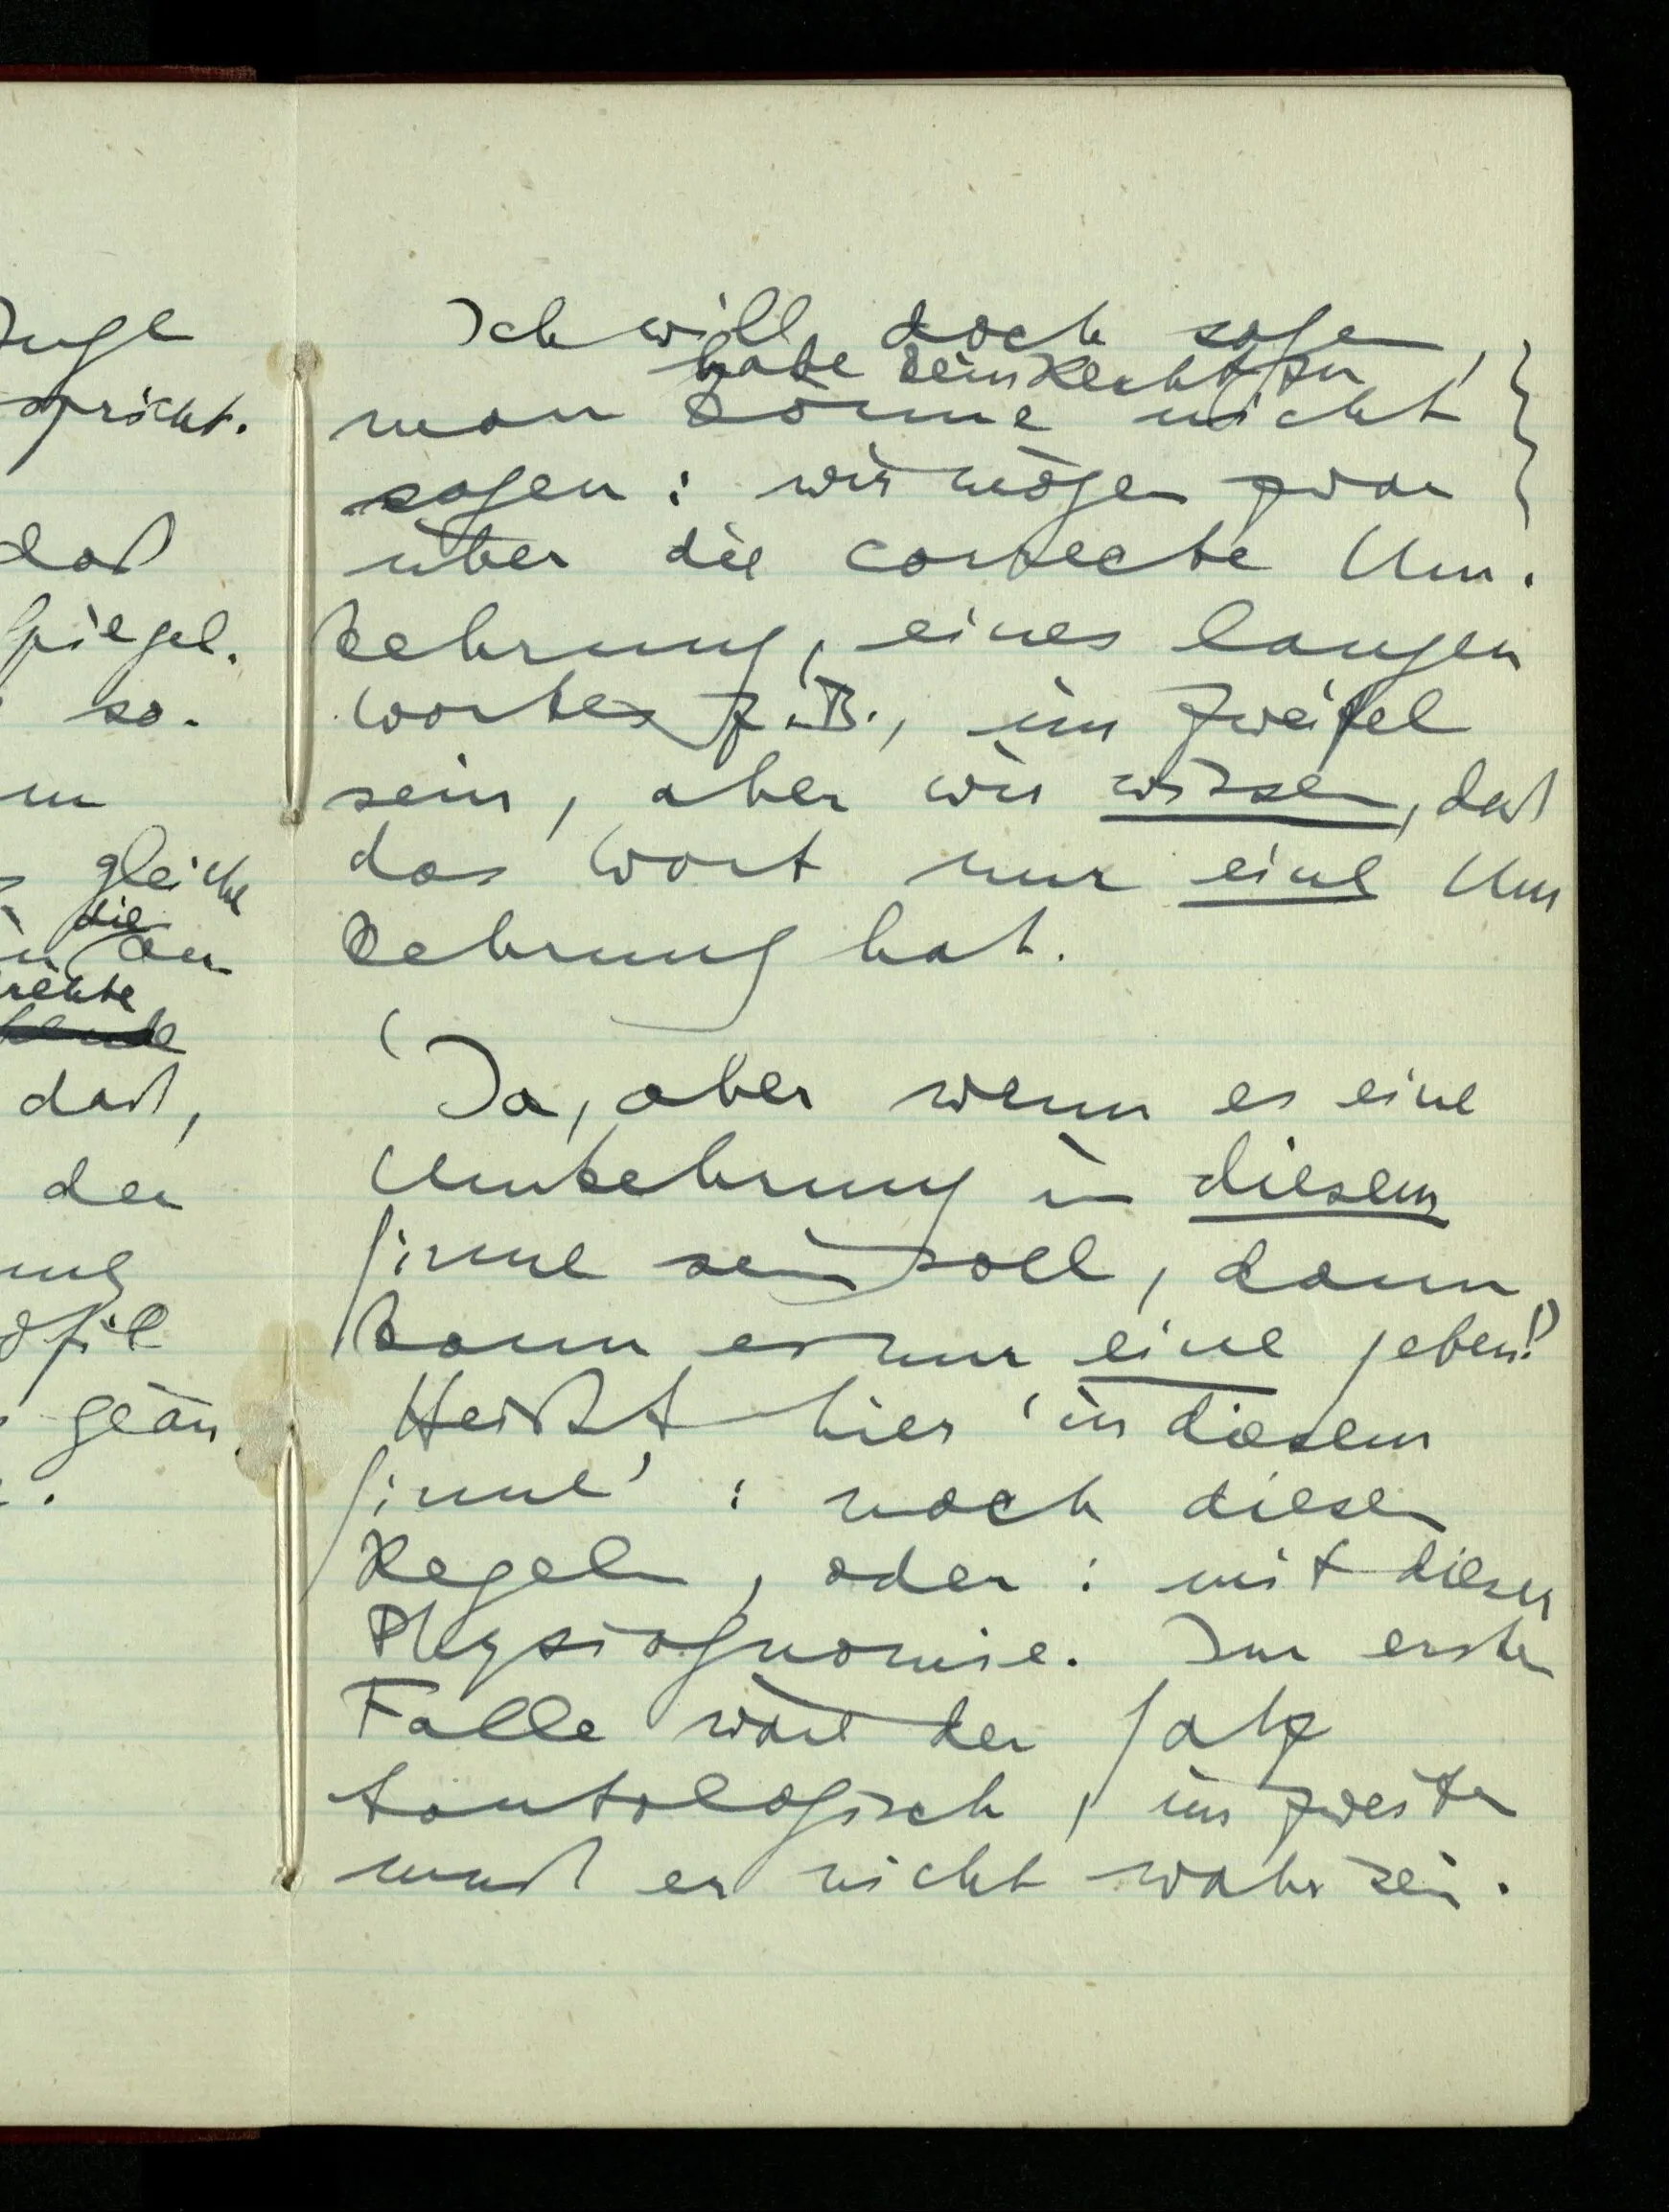 Zuge
spricht.
daß
Spiegel-
so-
gleiche
die
rechte
daß,
der
geän-
Ich will doch sagen,
habe kein Recht zu
man könne nicht
sagen: wir mögen zwar
über die correcte Um-
kehrung, eines langen
Wortes z.B., im Zweifel
sein, aber wir wissen, daß
das Wort nur eine Um
kehrung hat.
‘Ja, aber wenn es eine
Umkehrung in diesem
Sinne sein soll, dann
kann es nur eine geben!’
Heißt hier ‘in diesem
Sinne’: nach diesen
Regeln, oder: mit dieser
Physiognomie. Im ersten
Falle wäre der Satz
tautologisch, im zweiten
muß er nicht wahr sein.